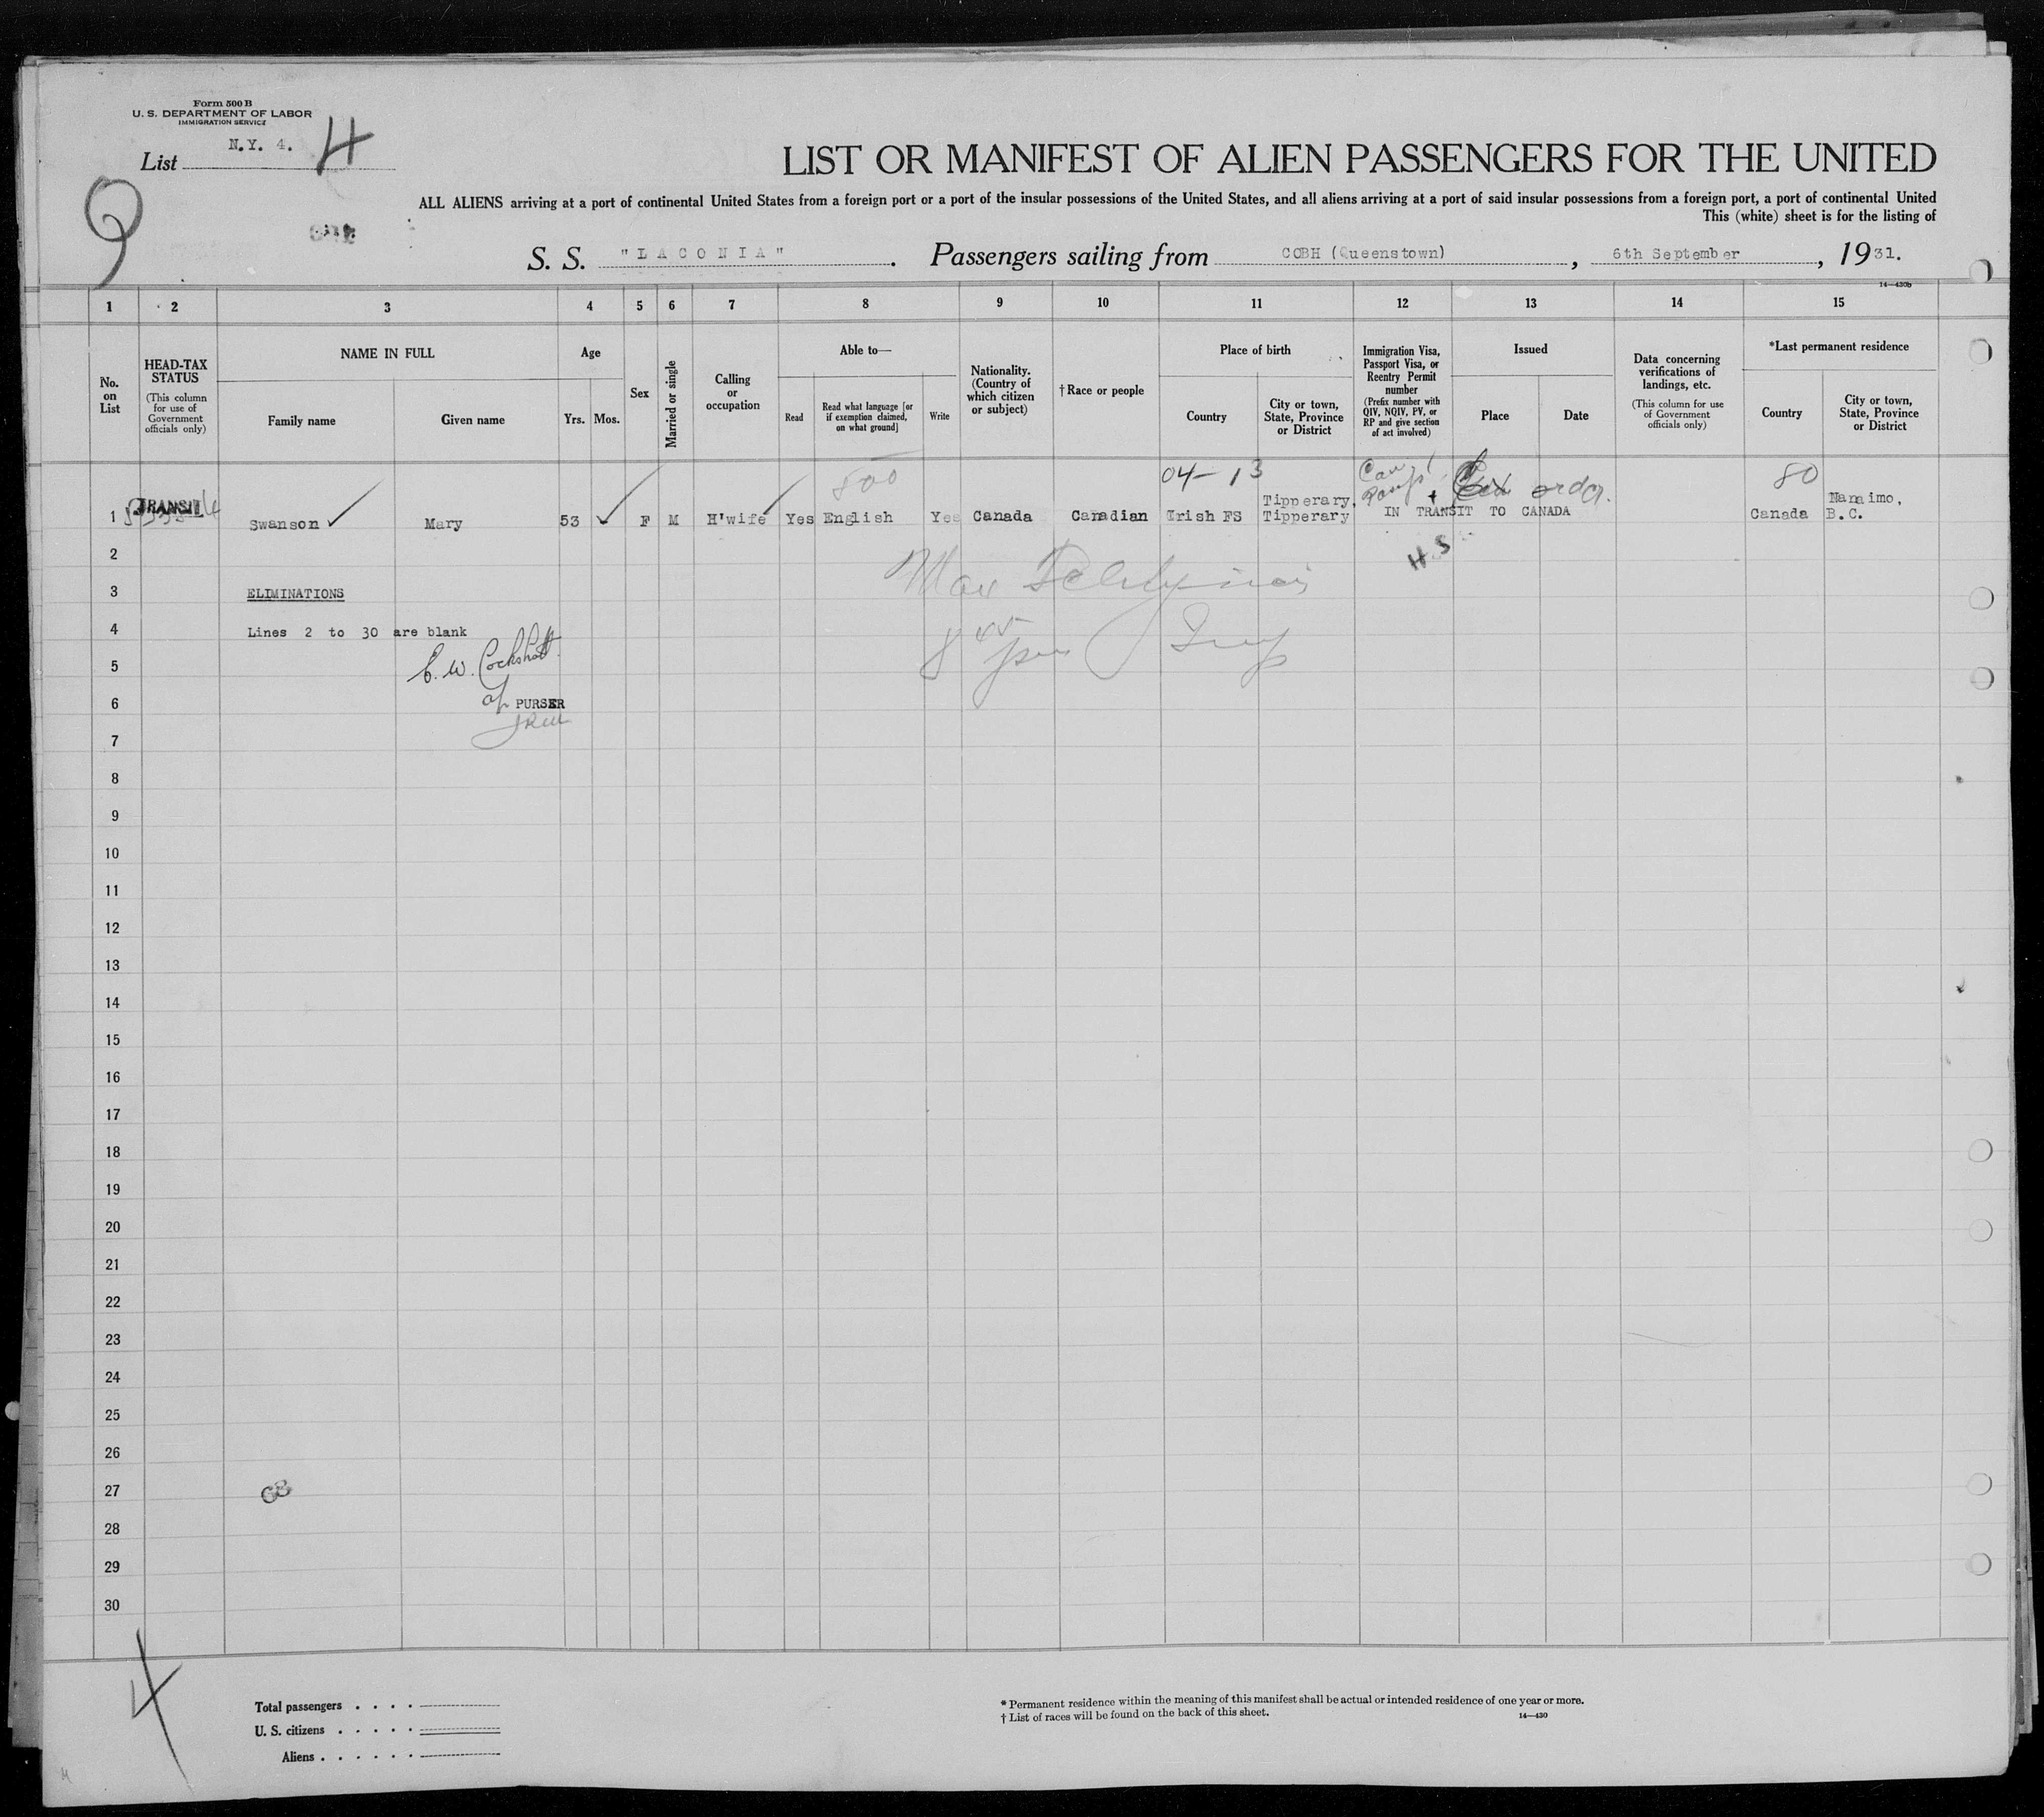 Form 500 B
U. S. DEPARTMENT OF LABOR
IMMIGRATION SERVICE
List N.Y. 4. 4
9
LIST OR MANIFEST OF ALIEN PASSENGERS FOR THE UNITED
ALL ALIENS arriving at a port of continental United States from a foreign port or a port of the insular possessions of the United States, and all aliens arriving at a port of said insular possessions from a foreign port, a port of continental United
This (white) sheet is for the listing of
S. S. "LACONIA". Passengers sailing from COBH (Queenstown), 6th September, 1931.
14—430b
1 2 3 4 5 6 7 8 9 10 11 12 13 14 15
No. on List
HEAD-TAX STATUS
(This column for use of Government officials only)
NAME IN FULL
Family name
Given name
Age
Yrs. Mos.
Sex
Married or single
Calling or occupation
Able to—
Read
Read what language [or if exemption claimed, on what ground]
Write
Nationality. (Country of which citizen or subject)
† Race or people
Place of birth
Country
City or town, State, Province or District
Immigration Visa, Passport Visa, or Reentry Permit number
(Prefix number with QIV, NQIV, PV, or RP and give section of act involved)
Issued
Place
Date
Data concerning verifications of landings, etc.
(This column for use of Government officials only)
*Last permanent residence
Country
City or town, State, Province or District
800 04-13 80
1 TRANSIT Swanson Mary 53 F M H'wife Yes English Yes Canada Canadian Irish FS Tipperary, Tipperary IN TRANSIT TO CANADA Canada Nanaimo, B.C.
H.S
2
3 ELIMINATIONS
4 Lines 2 to 30 are blank
E. W. Cockshott
5
6 PURSER
7
8
9
10
11
12
13
14
15
16
17
18
19
20
21
22
23
24
25
26
27
28
29
30
4
Total passengers . . . .
U. S. citizens . . . . .
Aliens . . . . . .
* Permanent residence within the meaning of this manifest shall be actual or intended residence of one year or more.
† List of races will be found on the back of this sheet.
14—430